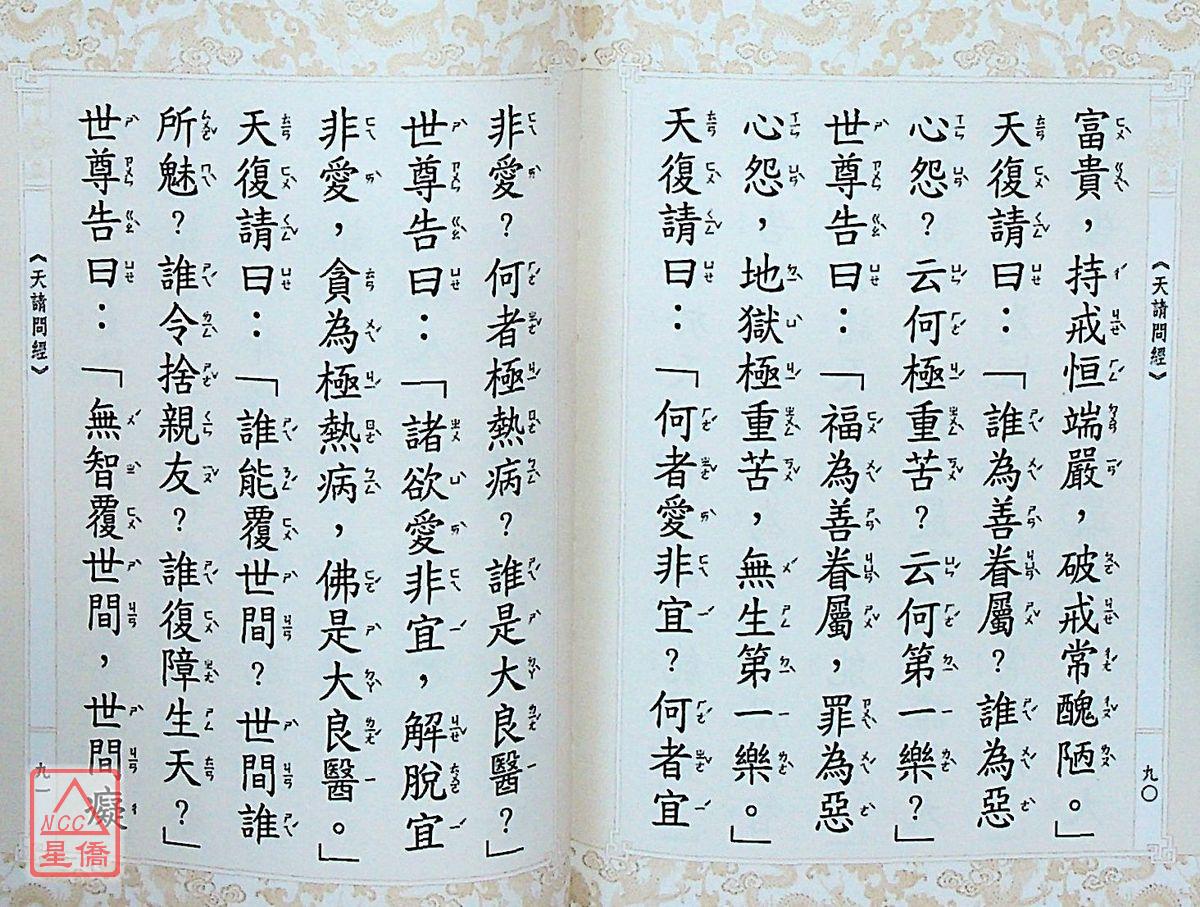 《天請問經》
九〇
富貴，持戒恒端嚴，破戒常醜陋。」
天復請曰：「誰為善眷屬？誰為惡
心怨？云何極重苦？云何第一樂？」
世尊告曰：「福為善眷屬，罪為惡
心怨，地獄極重苦，無生第一樂。」
天復請曰：「何者愛非宜？何者宜
非愛？何者極熱病？誰是大良醫？」
世尊告曰：「諸欲愛非宜，解脫宜
非愛，貪為極熱病，佛是大良醫。」
天復請曰：「誰能覆世間？世間誰
所魅？誰令捨親友？誰復障生天？」
世尊告曰：「無智覆世間，世間癡
《天請問經》
九一
NCC
星僑